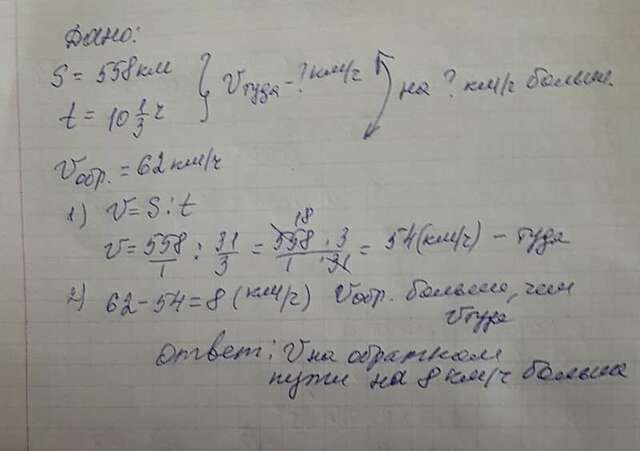 Дано:
S = 558 км } Vтуда - ? км/ч на ? км/ч больше.
t = 10 1/3 ч
Vобр. = 62 км/ч
1) V = S : t
V = 558/1 : 31/3 = 558 · 3 / 1 · 31 = 54 (км/ч) - туда
18
2) 62 - 54 = 8 (км/ч) Vобр. больше, чем
Vтуда
Ответ: V на обратном
пути на 8 км/ч больше